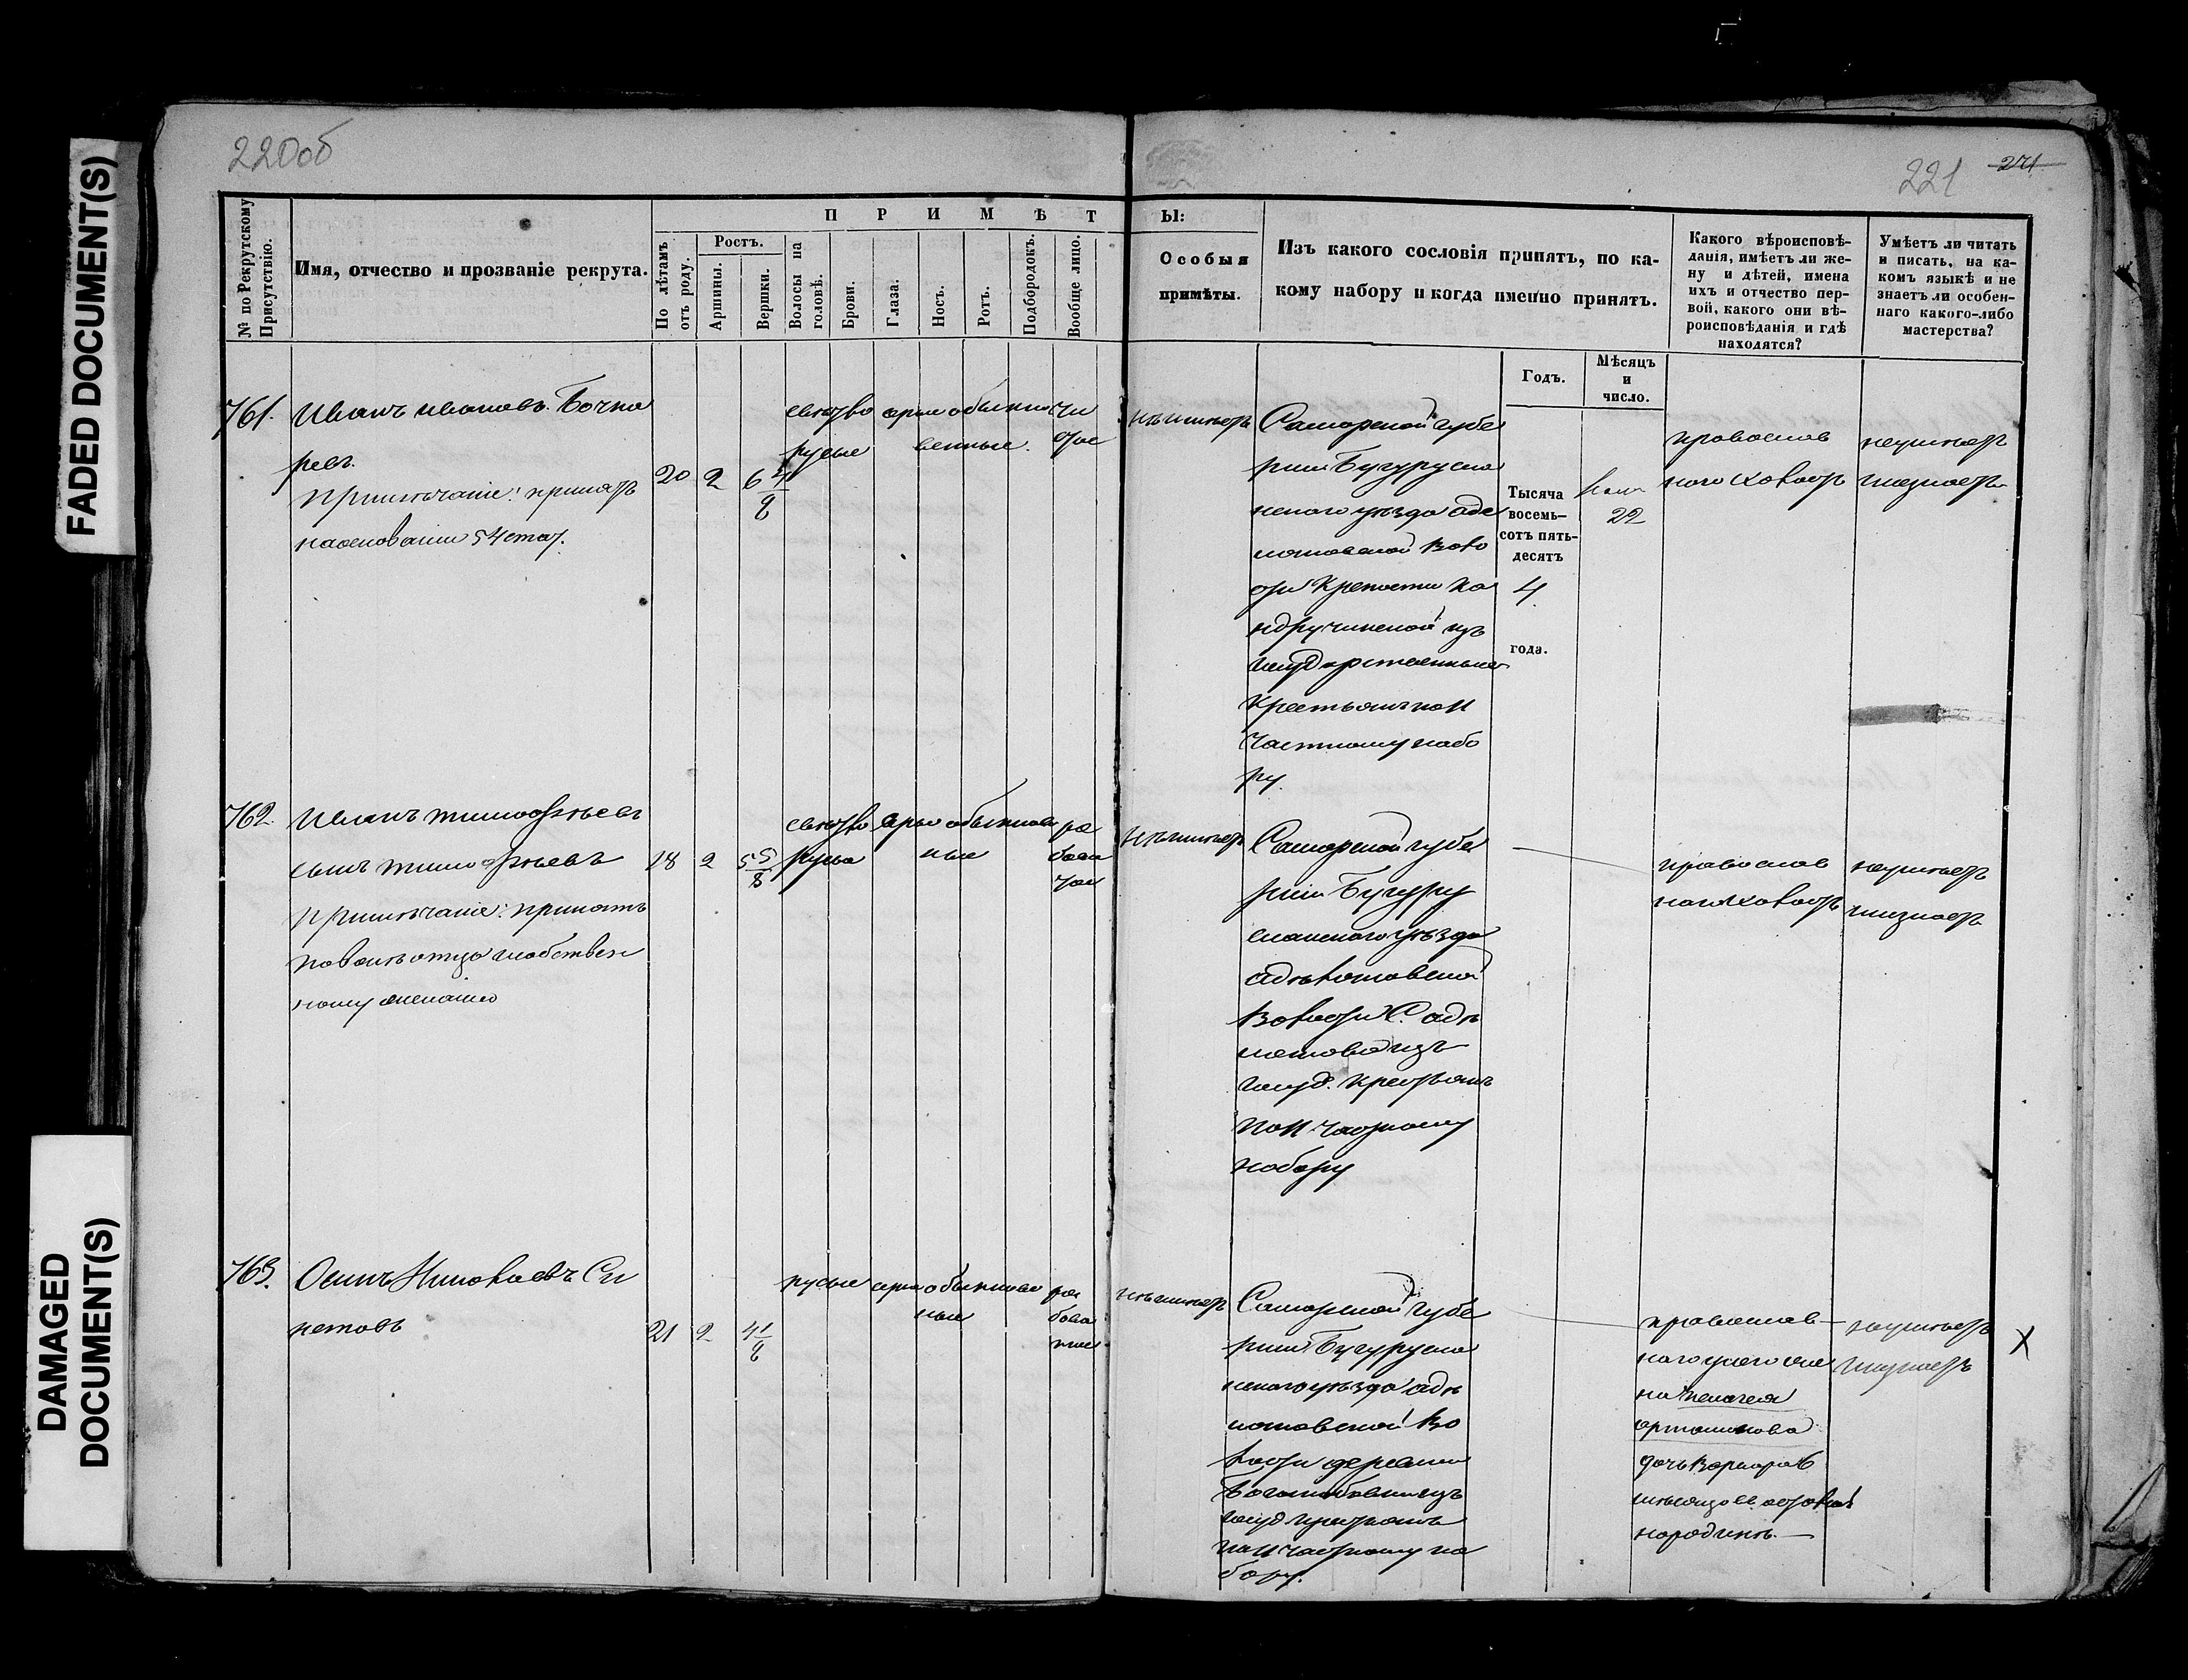 FADED DOCUMENT(S)
DAMAGED
DOCUMENT(S)
220об
221 271
№ по Рекрутскому
Присутствію.
Имя, отчество и прозваніе рекрута.
ПРИМѢТЫ:
По лѣтамъ
отъ роду.
Ростъ.
Аршины.
Вершки.
Волосы на
головѣ.
Брови.
Глаза.
Носъ.
Ротъ.
Подбородокъ.
Вообще лицо.
Особыя
примѣты.
Изъ какого сословія принятъ, по ка-
кому набору и когда именно принятъ.
Годъ.
Мѣсяцъ
и
число.
Какого вѣроисповѣ-
данія, имѣетъ ли же-
ну и дѣтей, имена
ихъ и отчество пер-
вой, какого они вѣ-
роисповѣданія и гдѣ
находятся?
Умѣетъ ли читать
и писать, на ка-
комъ языкѣ и не
знаетъ ли особен-
наго какого-либо
мастерства?
761.
Иванъ Ивановъ Бочка
ревъ.
Примѣчаніе: принятъ
наоснованіи 54 стат.
20
2
6 4/8
свѣтло
русые
серые
обыкно
венные.
чи
стое
неимѣетъ
Самарской губе
рніи Бугурусла
нскаго уѣзда
воло
сти Крепости Ко
ндурчинской изъ
государственныхъ
крестьянъ по II
частному набо
ру.
Тысяча
восемь-
сотъ пять-
десятъ
4
года.
22
православ
наго холостъ
неумѣетъ
незнаетъ
762.
Иванъ Тимофѣевъ
сынъ Тимофѣевъ
Примѣчаніе: принятъ
поволѣ отца исобствен
ному желанію
18
2
5 5/8
свѣтло
русые
серые
обыкнове
ные
ря
бова
тое
неимѣетъ
Самарской губе
рніи Бугуру
сланскаго уѣзда
волости С.
изъ
госуд. крестьянъ
по II частному
набору
православ
наго холостъ
неумѣетъ
незнаетъ
763.
Осипъ Николаевъ Си
нетовъ
21
2
4 1/8
русые
серые
обыкнове
ные
ря
бова
тое
неимѣетъ
Самарской губе
рніи Бугурусла
нскаго уѣзда
во
лости деревни
изъ
госуд крестьянъ
по II частному на
бору.
православ
наго у него же
на Пелагея
дочь Варвара 6
мѣсяцовъ остались
народинѣ.
неумѣетъ
незнаетъ
X